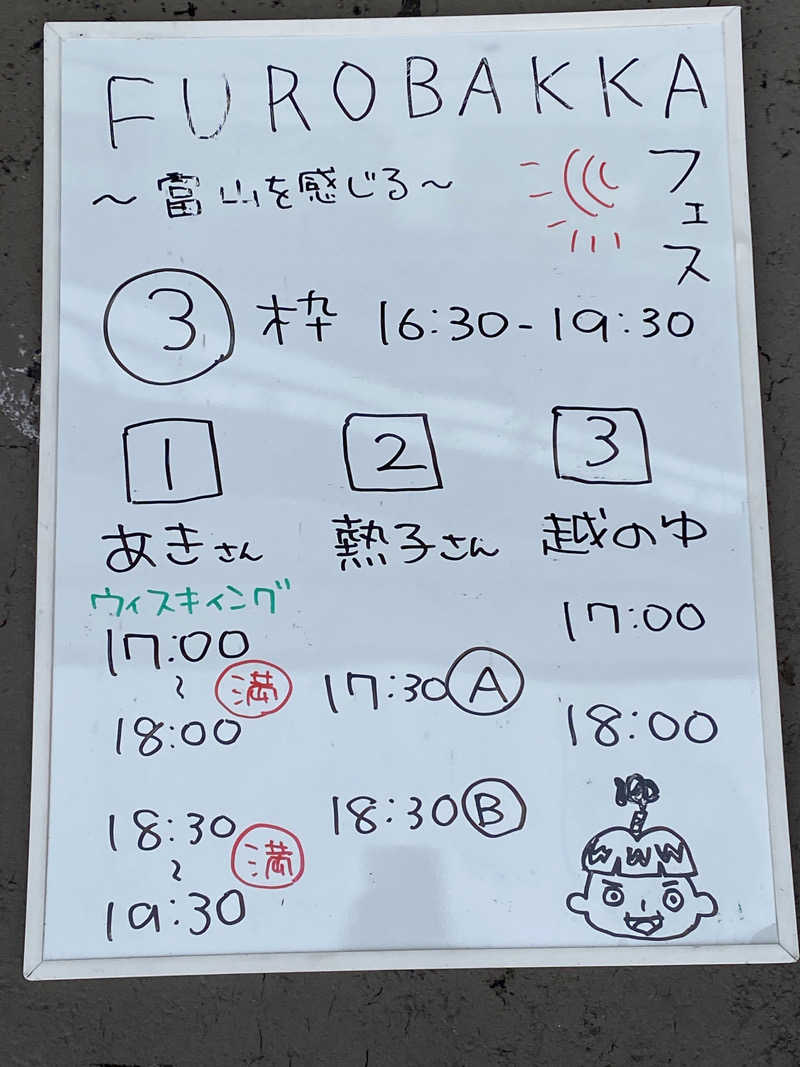 FUROBAKKA
フェス
～富山を感じる～
③枠 16:30-19:30
1
あきさん
ウィスキィング
17:00
～
満
18:00
18:30
～
満
19:30
2
熱子さん
17:30 Ⓐ
18:30 Ⓑ
3
越のゆ
17:00
18:00
WWW